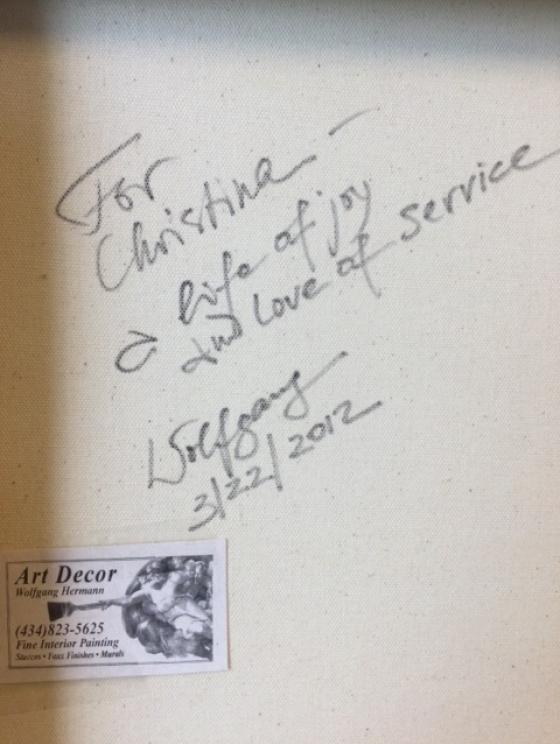 For
Christina -
a life of joy
and love of service
Wolfgang
3/22/2012
Art Decor
Wolfgang Hermann
(434)823-5625
Fine Interior Painting
Stuccos • Faux Finishes • Murals